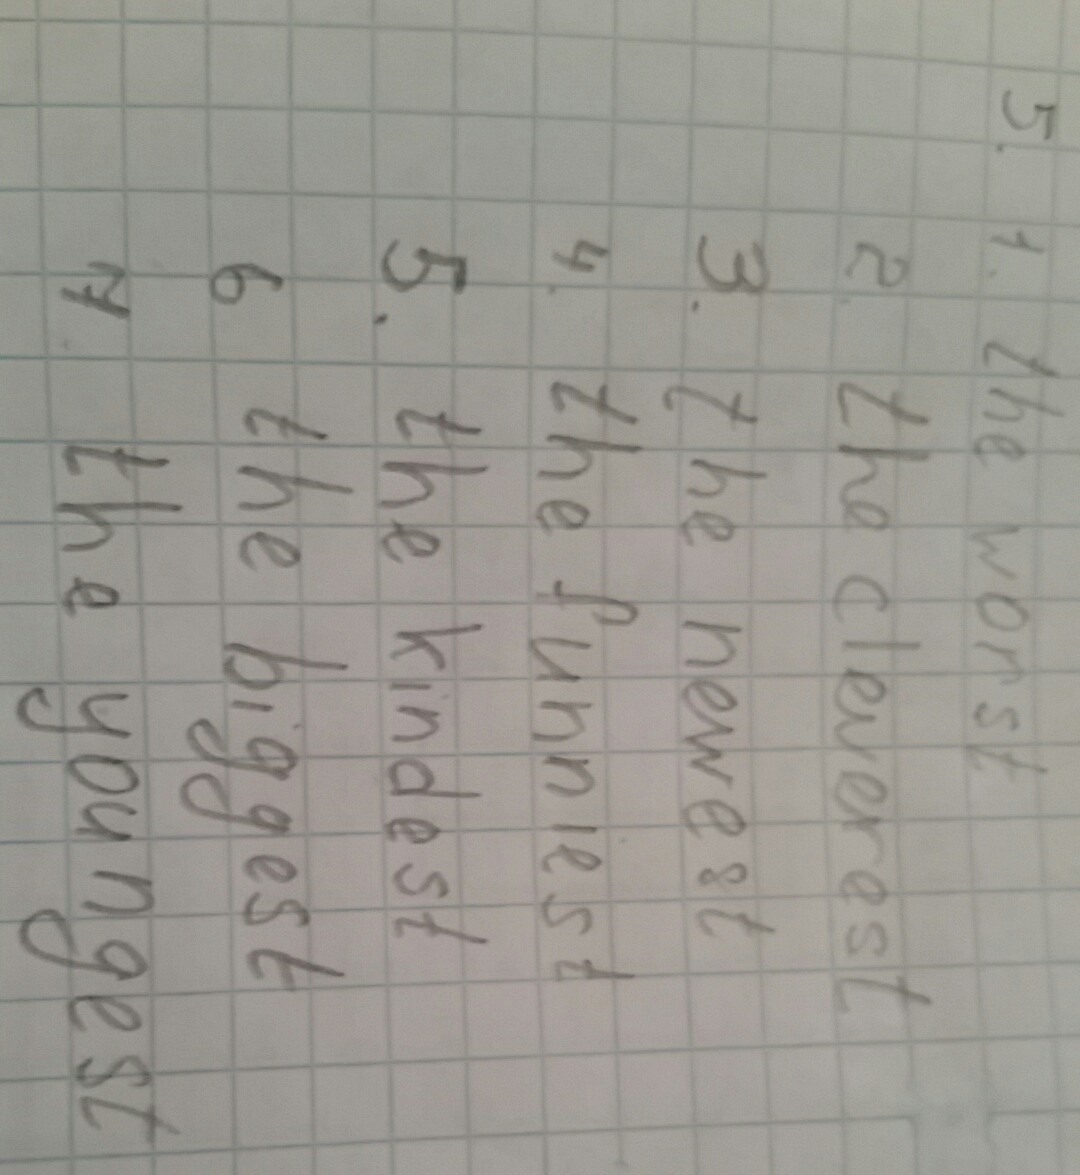 5. 1. the worst
2. the cleverest
3. the newest
4. the funniest
5. the kindest
6 the biggest
7. the youngest